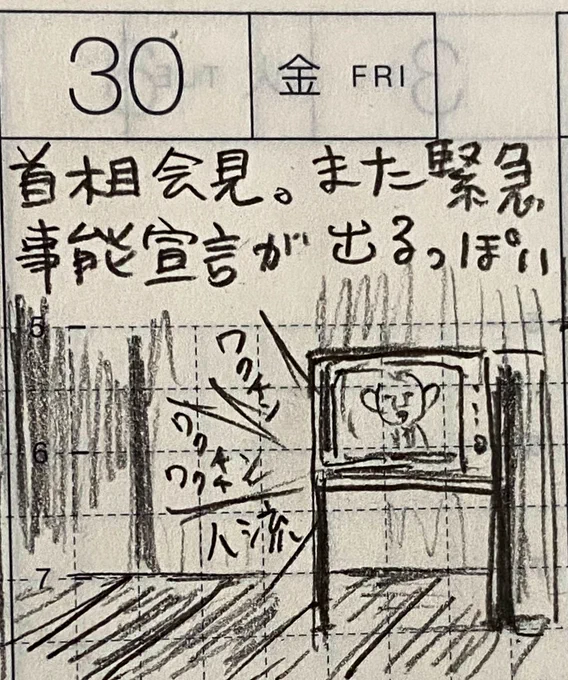 30 金 FRI
首相会見。また緊急
事能宣言が出るっぽい
5
ワクチン
6
ワクチン
ワクチン
人流
7